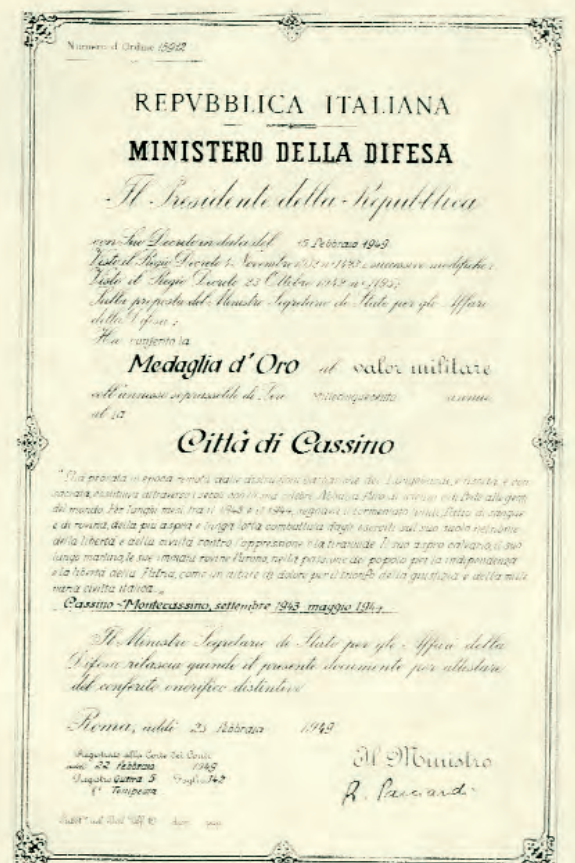 Numero d'Ordine 15912
REPVBBLICA ITALIANA
MINISTERO DELLA DIFESA
Il Presidente della Repubblica
con Suo Decreto in data del 15 Febbraio 1949
Visto il Regio Decreto 4 Novembre 1932 n° 1423 e successive modifiche;
Visto il Regio Decreto 23 Ottobre 1942 n°
Sulla proposta del Ministro Segretario di Stato per gli Affari
della Difesa;
Ha conferito la
Medaglia d'Oro al valor militare
coll'annesso soprassoldo di Lire annue
al la
Città di Cassino
"Già provata in epoca remota dalle distruzioni barbariche dei Longobardi, e
attraverso i secoli con la sua celebre Abbazia alle genti
del mondo. Per lunghi mesi, tra il 1943 e il 1944, di sangue
e di rovina, della più aspra e lunga lotta combattuta dagli eserciti sul suo suolo nel nome
della libertà e della civiltà contro l'oppressione e la tirannide. Il suo aspro calvario, il suo
lungo martirio, le sue immani rovine furono, nella passione del popolo per la indipendenza
e la libertà della Patria, come un altare di dolore per il trionfo della giustizia e della mille
naria civiltà italica.„
Cassino - Montecassino, settembre 1943 maggio 1944
Il Ministro Segretario di Stato per gli Affari della
Difesa rilascia quindi il presente documento per attestare
del conferito onorifico distintivo
Roma, addì 23 Febbraio 1949
Registrato alla Corte dei Conti
addì 22 Febbraio 1949
Registro Guerra 5 Foglio 342
Il Ministro
R. Pacciardi